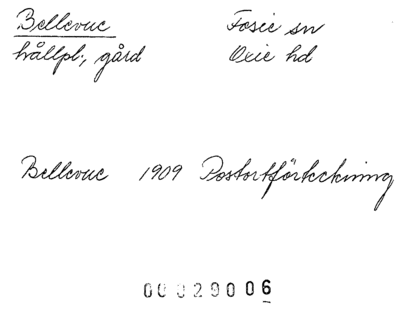 Bellevue Fosie sn
hållpl., gård Oxie hd
Bellevue 1909 Postortförteckning
00029006